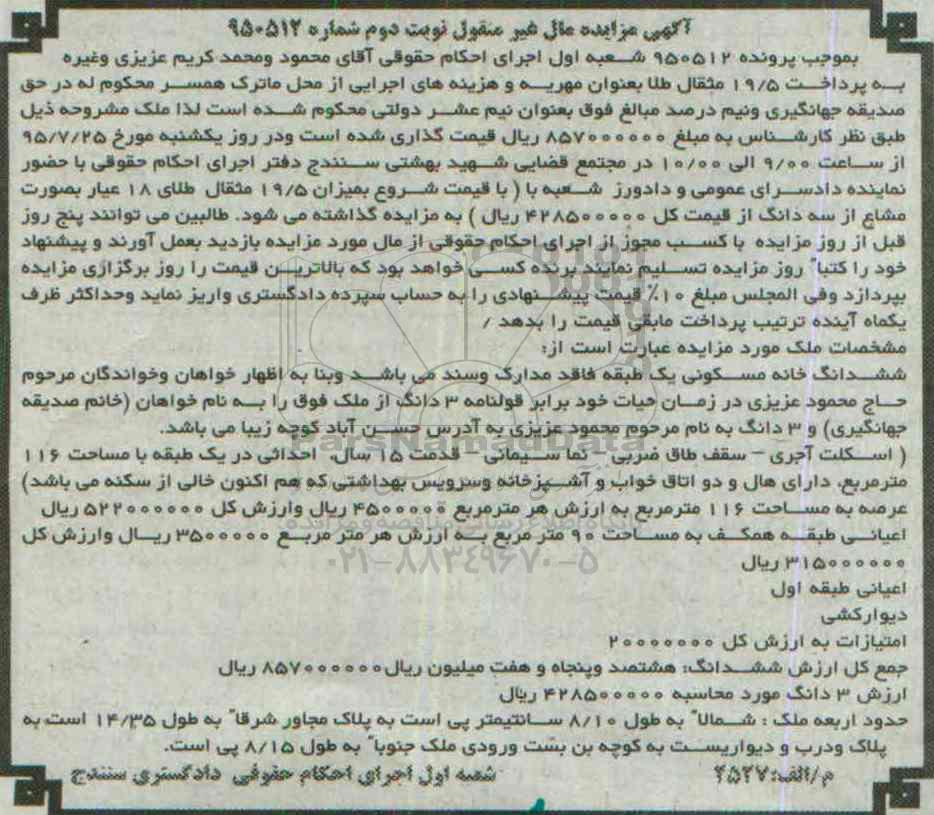 آگهی مزایده مال غیر منقول نوبت دوم شماره ۹۵۰۵۱۲
بموجب پرونده ۹۵۰۵۱۲ شعبه اول اجرای احکام حقوقی آقای محمود ومحمد کریم عزیزی وغیره
به پرداخت ۱۹/۵ مثقال طلا بعنوان مهریه و هزینه های اجرایی از محل ماترک همسر محکوم له در حق
صدیقه جهانگیری ونیم درصد مبالغ فوق بعنوان نیم عشر دولتی محکوم شده است لذا ملک مشروحه ذیل
طبق نظر کارشناس به مبلغ ۸۵۷۰۰۰۰۰۰ ریال قیمت گذاری شده است ودر روز یکشنبه مورخ ۹۵/۷/۲۵
از ساعت ۹/۰۰ الی ۱۰/۰۰ در مجتمع قضایی شهید بهشتی سنندج دفتر اجرای احکام حقوقی با حضور
نماینده دادسرای عمومی و دادورز شعبه با ( با قیمت شروع بمیزان ۱۹/۵ مثقال طلای ۱۸ عیار بصورت
مشاع از سه دانگ از قیمت کل ۴۲۸۵۰۰۰۰۰ ریال ) به مزایده گذاشته می شود. طالبین می توانند پنج روز
قبل از روز مزایده با کسب مجوز از اجرای احکام حقوقی از مال مورد مزایده بازدید بعمل آورند و پیشنهاد
خود را کتباً روز مزایده تسلیم نمایند برنده کسی خواهد بود که بالاترین قیمت را روز برگزاری مزایده
بپردازد وفی المجلس مبلغ ۱۰٪ قیمت پیشنهادی را به حساب سپرده دادگستری واریز نماید وحداکثر ظرف
یکماه آینده ترتیب پرداخت مابقی قیمت را بدهد /
مشخصات ملک مورد مزایده عبارت است از:
ششدانگ خانه مسکونی یک طبقه فاقد مدارک وسند می باشد وبنا به اظهار خواهان وخواندگان مرحوم
حاج محمود عزیزی در زمان حیات خود برابر قولنامه ۳ دانگ از ملک فوق را به نام خواهان (خانم صدیقه
جهانگیری) و ۳ دانگ به نام مرحوم محمود عزیزی به آدرس حسن آباد کوچه زیبا می باشد.
( اسکلت آجری – سقف طاق ضربی – نما سیمانی – قدمت ۱۵ سال، احداثی در یک طبقه با مساحت ۱۱۶
مترمربع، دارای هال و دو اتاق خواب و آشپزخانه وسرویس بهداشتی که هم اکنون خالی از سکنه می باشد)
عرصه به مساحت ۱۱۶ مترمربع به ارزش هر مترمربع ۴۵۰۰۰۰۰ ریال وارزش کل ۵۲۲۰۰۰۰۰۰ ریال
اعیانی طبقه همکف به مساحت ۹۰ متر مربع به ارزش هر متر مربع ۳۵۰۰۰۰۰ ریال وارزش کل
۳۱۵۰۰۰۰۰۰ ریال
اعیانی طبقه اول
دیوارکشی
امتیازات به ارزش کل ۲۰۰۰۰۰۰۰
جمع کل ارزش ششدانگ: هشتصد وپنجاه و هفت میلیون ریال ۸۵۷۰۰۰۰۰۰ ریال
ارزش ۳ دانگ مورد محاسبه ۴۲۸۵۰۰۰۰۰ ریال
حدود اربعه ملک : شمالاً به طول ۸/۱۰ سانتیمتر پی است به پلاک مجاور شرقاً به طول ۱۴/۳۵ است به
پلاک ودرب و دیواریست به کوچه بن بست ورودی ملک جنوباً به طول ۸/۱۵ پی است.
م/الف:۴۵۲۷ شعبه اول اجرای احکام حقوقی دادگستری سنندج
ParsNamadData
پایگاه اطلاع رسانی مناقصه و مزایده
۰۲۱-۸۸۳۴۹۶۷۰-۵